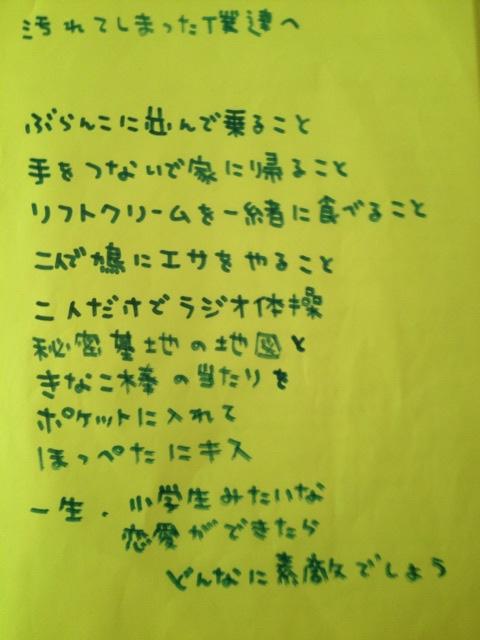 汚れてしまった僕達へ
ぶらんこに並んで乗ること
手をつないで家に帰ること
ソフトクリームを一緒に食べること
二人で鳩にエサをやること
二人だけでラジオ体操
秘密墓地の地図と
きなこ棒の当たりを
ポケットに入れて
ほっぺたにキス
一生、小学生みたいな
恋愛ができたら
どんなに素敵でしょう